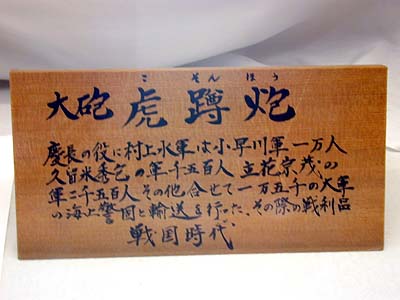 こ そん ほう
大砲 虎蹲炮
慶長の役に村上水軍は小早川軍一万人
久留米秀包の軍千五百人立花宗茂の
軍二千五百人その他合せて一万五千の大軍
の海上警固と輸送を行った、その際の戦利品
戦国時代